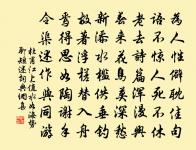 為人性僻耽佳句
語不惊人死不休
老去詩篇渾漫興
春來花鳥莫深愁
新添水檻供垂釣
故著浮槎替入舟
焉得思如陶謝手
令渠述作與同游
杜甫江上值水如海勢
聊短述詞典網